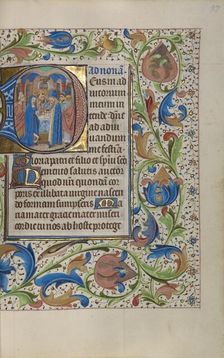 ad nonā
Deus in ad
iutorium
meum in
tende Dñe
ad adiu
uandum
me festi
Gloria patri et filio et spiri sco
Memento salutis auctor
quod nri quondā cor
poris ex illibata virgine nascen
do formam sumpseris Ma
ria mater gracie mater miseri
cordie tu nos ab hoste protege